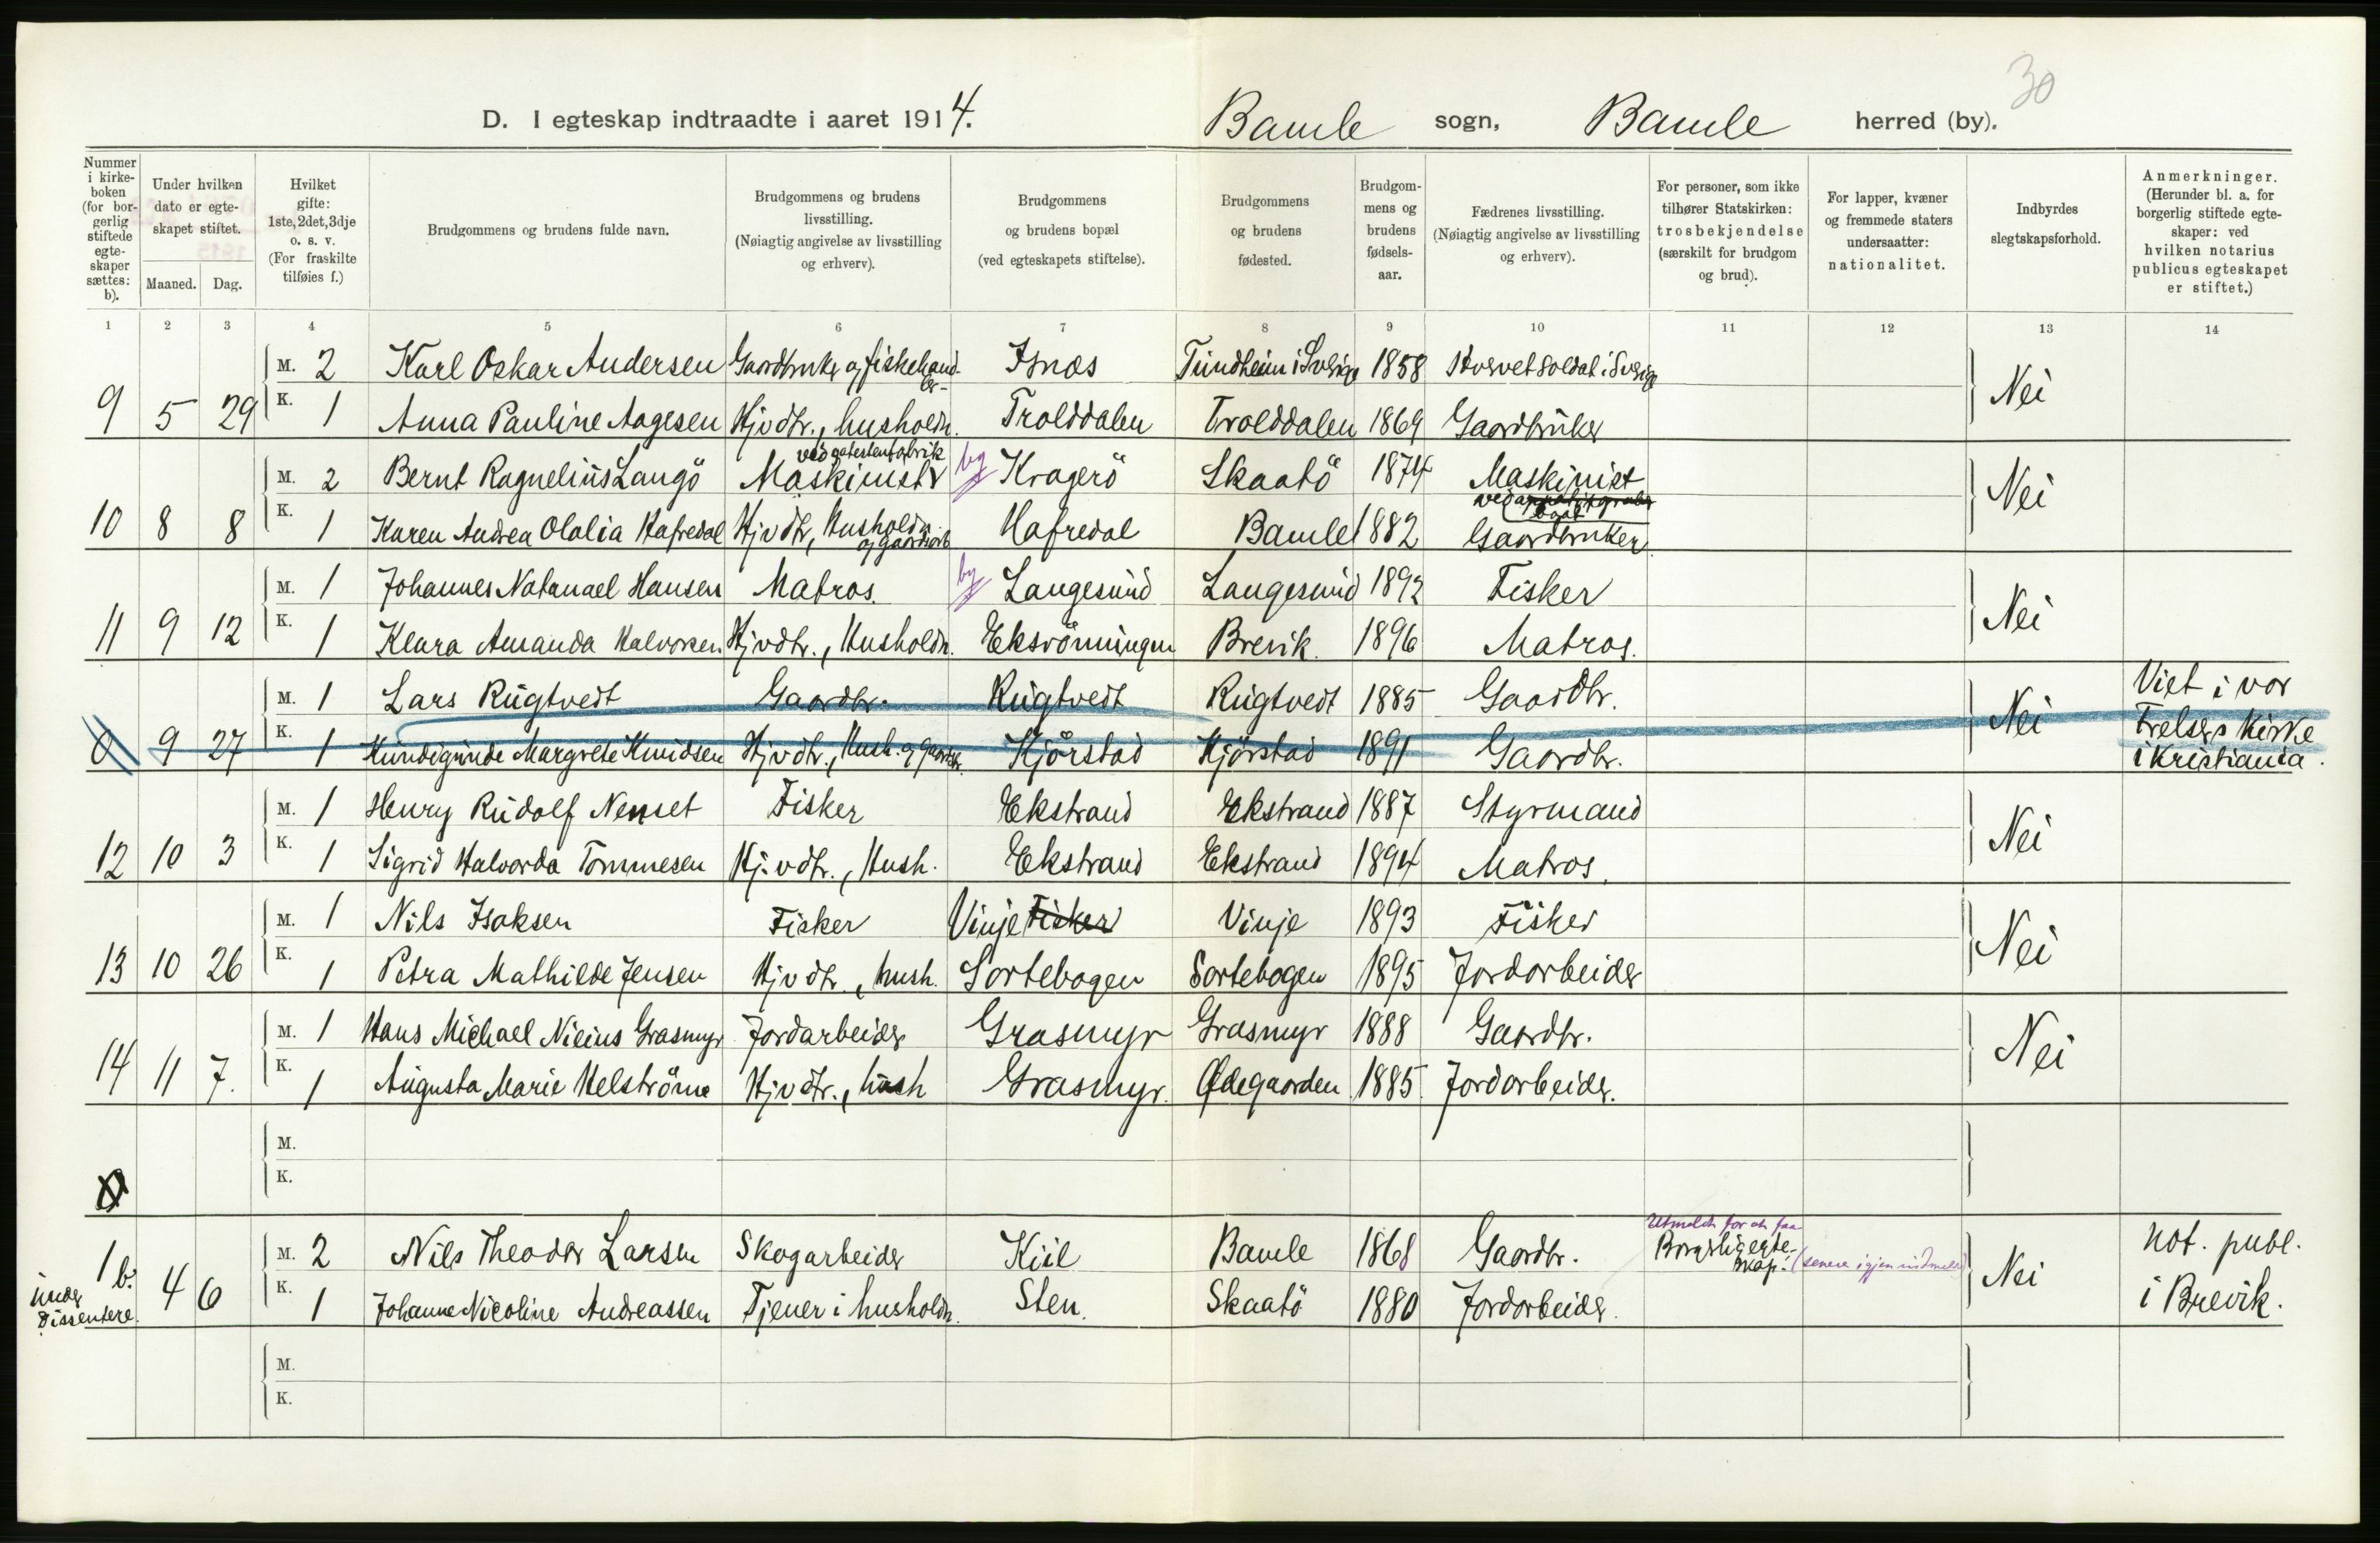 30
D. I egteskap indtraadte i aaret 1914. Bamle sogn, Bamle herred (by).
Nummer i kirke-boken (for bor-gerlig stiftede egte-skaper sættes: b).
Under hvilken dato er egte-skapet stiftet.
Maaned. Dag.
Hvilket gifte: 1ste, 2det, 3dje o. s. v. (For fraskilte tilføies f.)
Brudgommens og brudens fulde navn.
Brudgommens og brudens livsstilling. (Nøiagtig angivelse av livsstilling og erhverv).
Brudgommens og brudens bopæl (ved egteskapets stiftelse).
Brudgommens og brudens fødested.
Brudgom-mens og brudens fødsels-aar.
Fædrenes livsstilling. (Nøiagtig angivelse av livsstilling og erhverv).
For personer, som ikke tilhører Statskirken: trosbekjendelse (særskilt for brudgom og brud).
For lapper, kvæner og fremmede staters undersaatter: nationalitet.
Indbyrdes slegtskapsforhold.
Anmerkninger. (Herunder bl. a. for borgerlig stiftede egte-skaper: ved hvilken notarius publicus egteskapet er stiftet.)
1 2 3 4 5 6 7 8 9 10 11 12 13 14
M. 2 Karl Oskar Andersen Gaardbruker og fiskehand-ler- Isnæs Tundheim i Sverige 1858 soldat i Sverige
9 5 29 K. 1 Anna Pauline Aagesen Hjvdtr., husholdn. Trolddalen Trolddalen 1869 Gaardbruker Nei
M. 2 Bernt Ragnelius Langö Maskinist by Kragerö Skaatö 1874 Maskinist
10 8 8 K. 1 Karen Andrea Olalia Hafredal Hjvdtr, Husholdn. og gaardsarb Hafredal Bamle 1882 Gaardbruker Nei
M. 1 Johannes Natanael Hansen Matros. by Langesund Langesund 1892 Fisker
11 9 12 K. 1 Klara Amanda Halvorsen Hjvdtr., Husholdn. Eksrönningen Brevik. 1896 Matros. Nei
M. 1 Lars Rugtvedt Gaardbr. Rugtvedt Rugtvedt 1885 Gaardbr. Viet i vor
0 9 27 K. 1 Kundigunde Margrete Knudsen Hjvdtr., Hush. og gaardsbr. Kjørstad Kjørstad 1891 Gaardbr. Nei Frelsers Kirke
i Kristiania.
M. 1 Henry Rudolf Nenset Fisker Ekstrand Ekstrand 1887 Styrmand
12 10 3 K. 1 Sigrid Halvorda Tommesen Hj.vdtr., Hush. Ekstrand Ekstrand 1894 Matros. Nei
M. 1 Nils Isaksen Fisker Vinje Fisker Vinje 1893 Fisker
13 10 26 K. 1 Petra Mathilde Jensen Hjvdtr., hush. Sortebogen Sortebogen 1895 Jordarbeider Nei
M. 1 Hans Michael Nicius Grasmyr Jordarbeider Grasmyr Grasmyr 1888 Gaardbr.
14 11 7. K. 1 Augusta Marie Helströme Hjvdtr., hush Grasmyr. Ødegaarden 1885 Jordarbeider. Nei
M.
K.
M. 2 Nils Theodor Larsen Skogarbeider Kiil Bamle 1868 Gaardbr. Utmeldt for at faa Borgerlig egte-skap. (senere igjen indmeldt) not. publ.
1 b. 4 6 K. 1 Johanne Nicoline Andreassen Tjener i husholdn. Sten. Skaatö 1880 Jordarbeider. Nei i Brevik.
under
Dissentere.
M.
K.